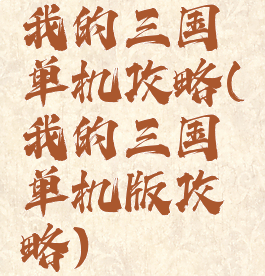 我的三国
单机攻略(
我的三国
单机版攻
略)